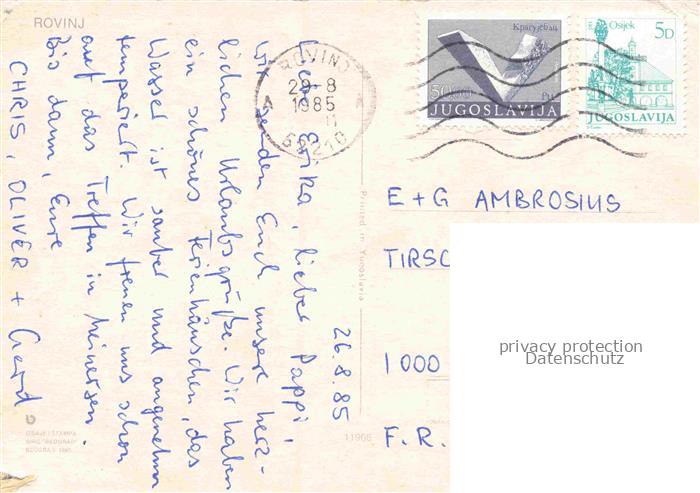 ROVINJ
26.8.85
Liebe Erika, lieber Pappi,
wir senden Euch unsere herz-
lichen Urlaubsgrüße. Wir haben
ein schönes Ferienhäuschen, das
Wasser ist sauber und angenehm
temperiert. Wir freuen uns schon
auf das Treffen in Meinersen.
Bis dann, Eure
CHRIS, OLIVER + Gerd
ROVINJ
29-8
1985
11
A
52210
Крагујевац
50
JUGOSLAVIJA
Osijek
5D
JUGOSLAVIJA
E+G AMBROSIUS
TIRSC
1000
F.R.
privacy protection
Datenschutz
Printed in Yugoslavia
11966
IZDAJE I ŠTAMPA
BEOGRAD 1981